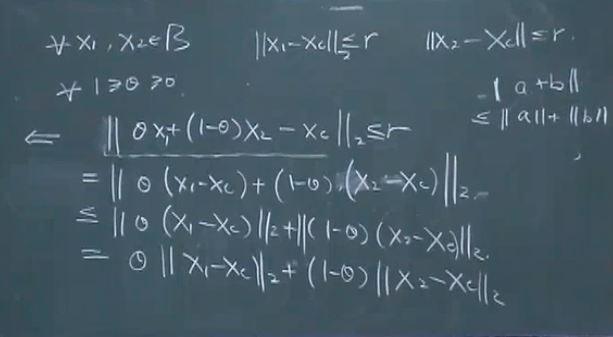 ∀ x₁, x₂ ∈ B ||x₁-x_c||₂ ≤ r ||x₂-x_c|| ≤ r.
∀ 1 ≥ θ ≥ 0
||a+b||
≤ ||a|| + ||b||
⇐ ||θx₁+(1-θ)x₂-x_c||₂ ≤ r
= ||θ(x₁-x_c)+(1-θ)(x₂-x_c)||₂.
≤ ||θ(x₁-x_c)||₂+||(1-θ)(x₂-x_c)||₂.
= θ||x₁-x_c||₂+(1-θ)||x₂-x_c||₂